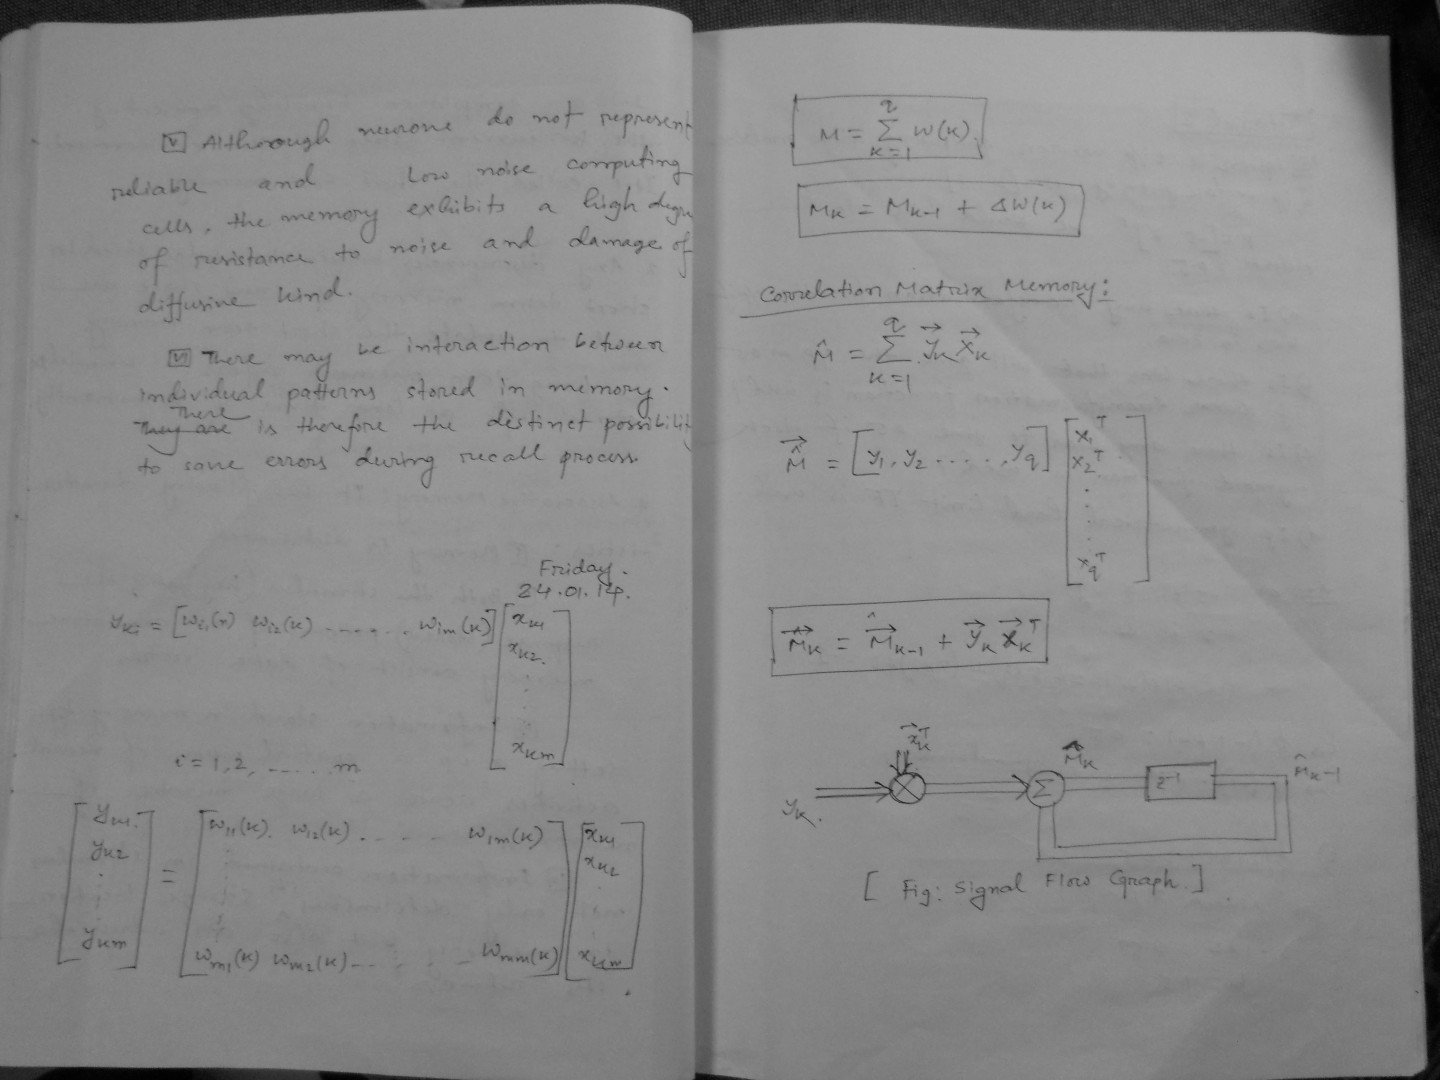 [V] Althorough neurone do not represent
reliable and Low noise computing
cells, the memory exhibits a high degre
of resistance to noise and damage of
diffusive kind.
[VI] There may be interaction between
individual patterns stored in memory.
There
They are is therefore the distinct possibilit
to save errors during recall process.
Friday.
24.01.14.
y_ki = [w_i1(k) w_i2(k) ....... w_im(k)] [x_k1
x_k2
.
.
x_km]
i = 1, 2, ...... m
[y_k1 y_k2 . . y_km] = [w_11(k) w_12(k) . . . . w_1m(k)
w_m1(k) w_m2(k) - - . . . - w_mm(k)] [x_k1 x_k2 . . x_km]
M = Σ_{k=1}^{q} W(k)
M_k = M_{k-1} + ΔW(k)
Correlation Matrix Memory:
M̂ = Σ_{k=1}^{q} y⃗_k x⃗_k
M̂ = [y_1, y_2 ....., y_q] [x_1^T
x_2^T
.
.
x_q^T]
M̂_k = M̂_{k-1} + y⃗_k x⃗_k^T
x⃗_k^T
M̂_k
Σ
z^-1
M̂_{k-1}
y_k.
[ Fig: Signal Flow Graph.]